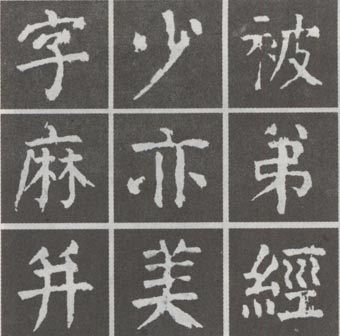 被弟經
少亦美
字麻并